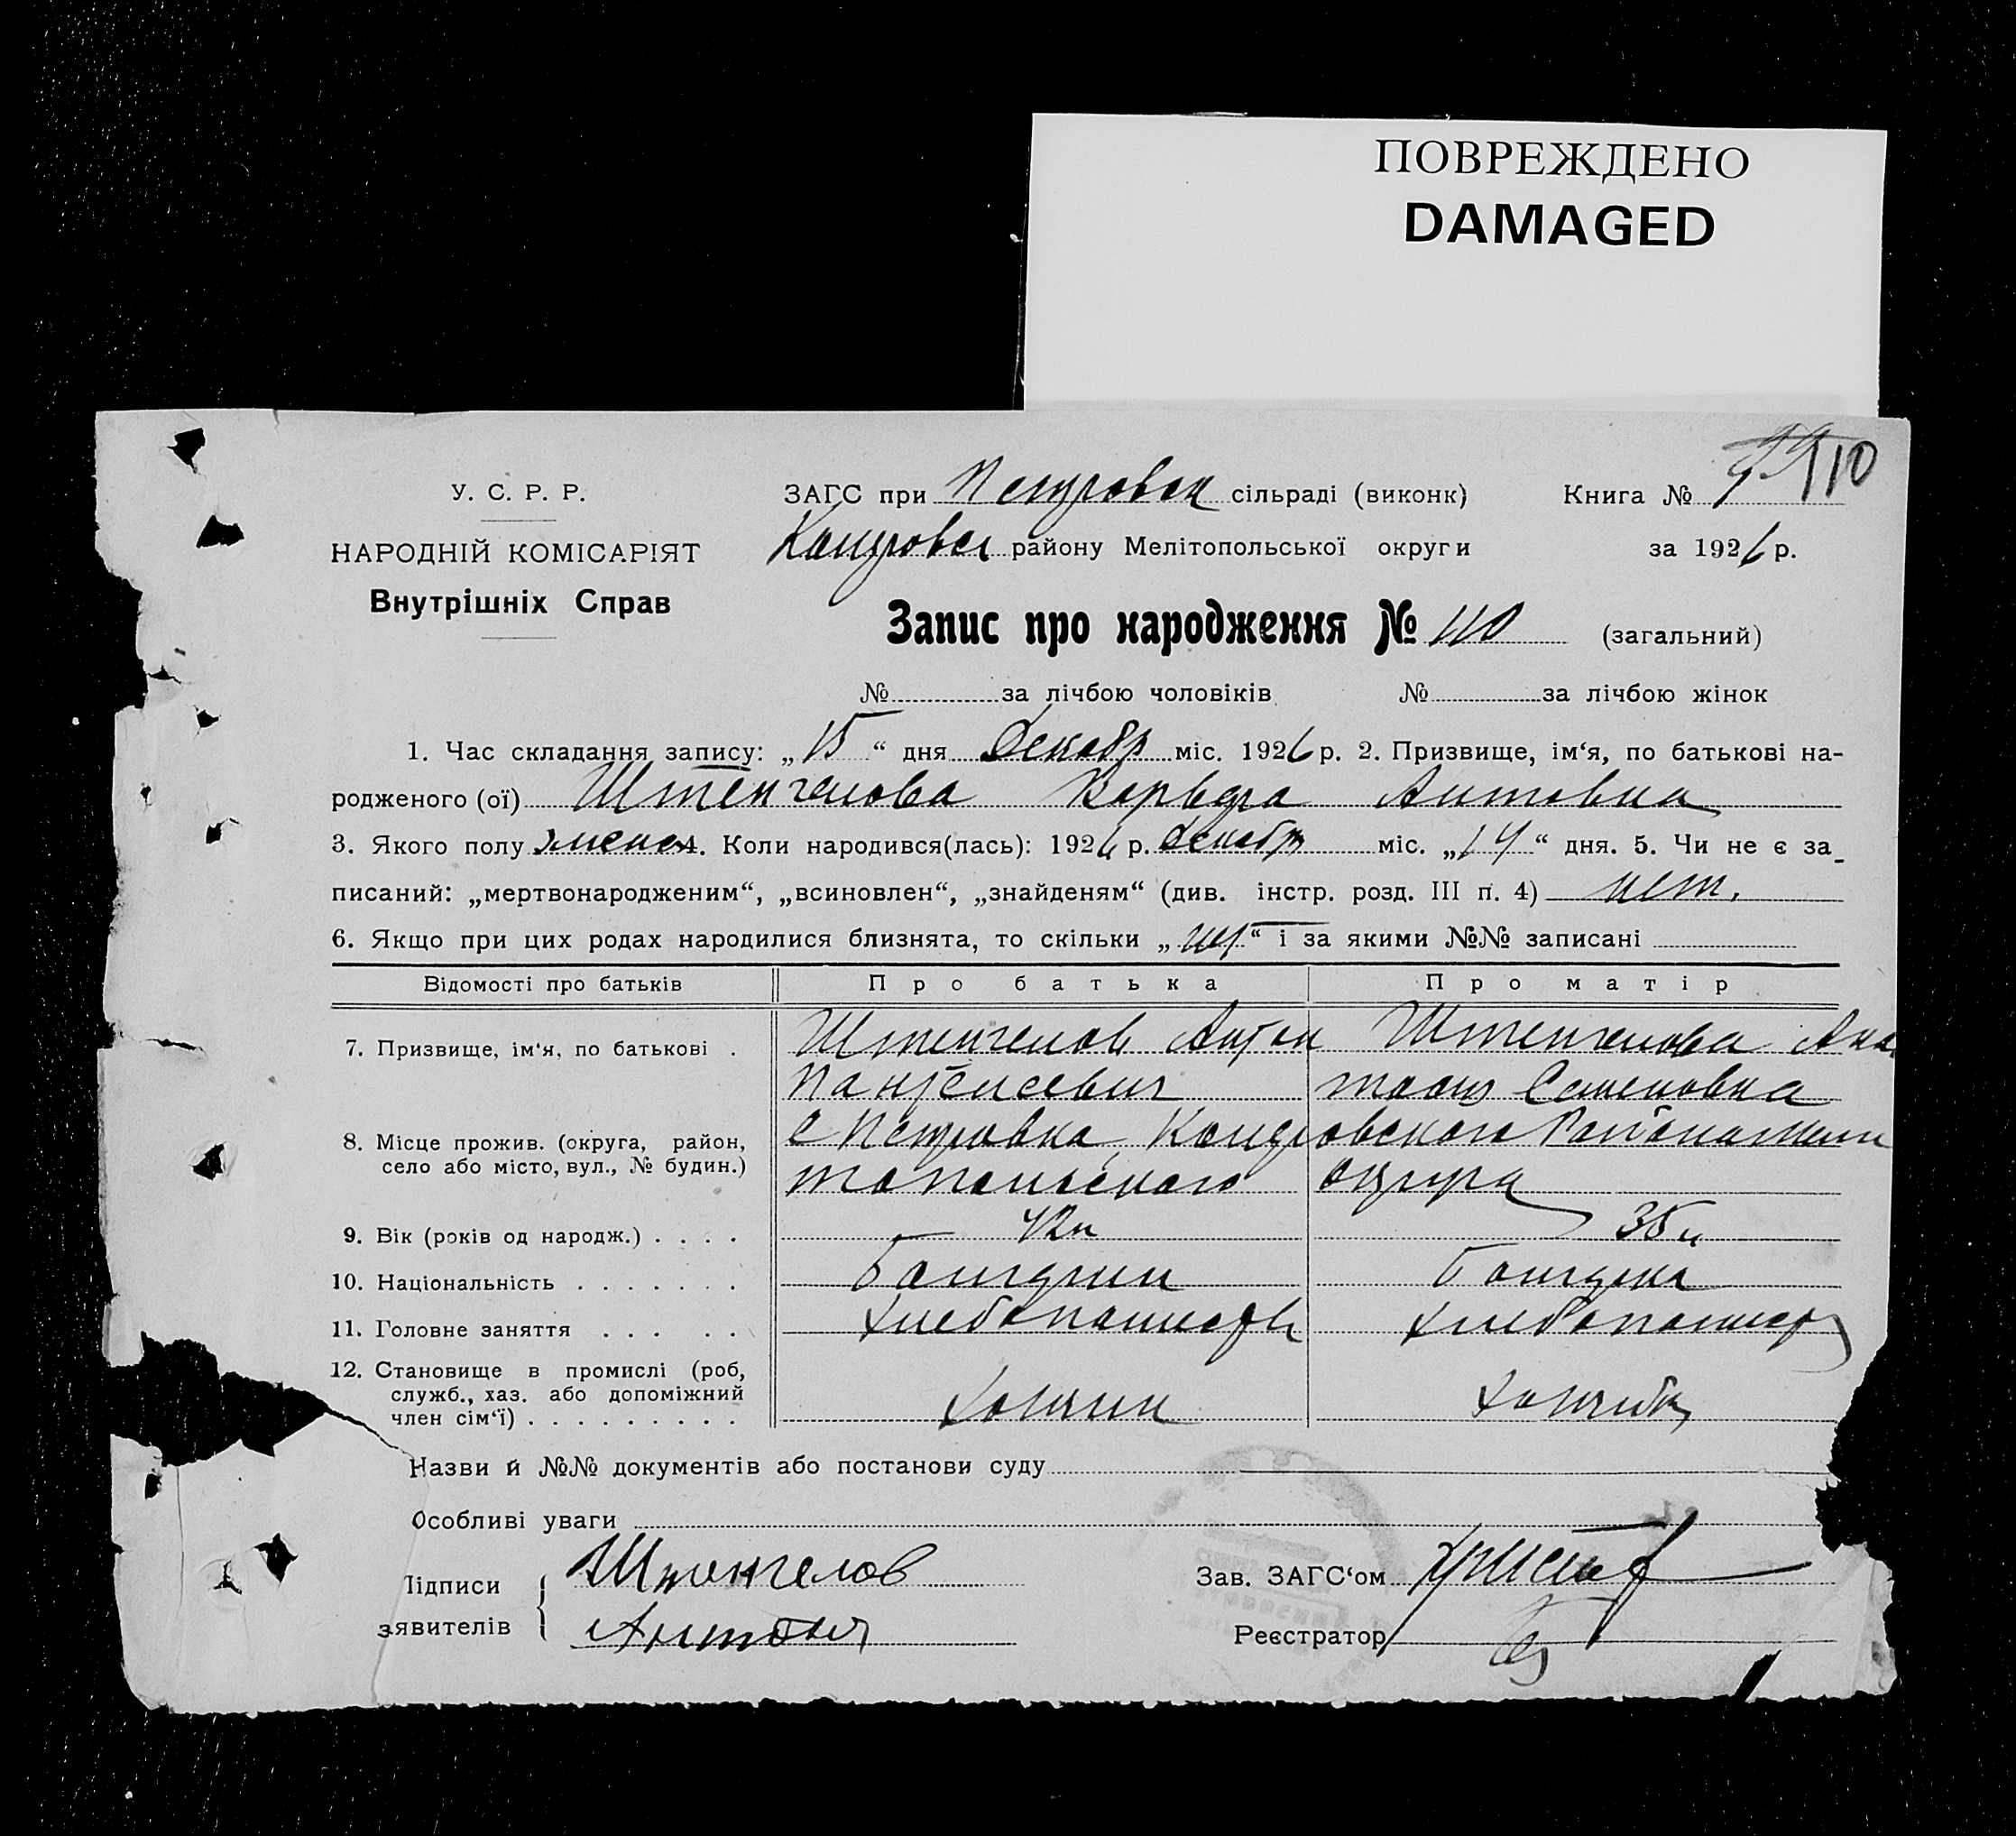 ПОВРЕЖДЕНО
DAMAGED
110
У. С. Р. Р.
НАРОДНІЙ КОМІСАРІЯТ
Внутрішніх Справ
ЗАГС при Петровск сільраді (виконк) Книга №
району Мелітопольської округи за 1926 р.
Запис про народження № 110 (загальний)
№ за лічбою чоловіків № за лічбою жінок
1. Час складання запису: „15“ дня Декабр міс. 1926 р. 2. Призвище, ім‘я, по батькові на-
родженого (ої) Штенгелова Антовна
3. Якого полу женс 4. Коли народився(лась): 1926 р. Декабр міс. „14“ дня. 5. Чи не є за-
писаний: „мертвонародженим“, „всиновлен“, „знайденям“ (див. інстр. розд. III п. 4) нет.
6. Якщо при цих родах народилися близнята, то скільки „ “ і за якими №№ записані
Відомості про батьків Про батька Про матір
7. Призвище, ім‘я, по батькові . Штенгелов Антон Штенгелова Ана
Пантелеевич тасия Семеновна
8. Місце прожив. (округа, район, с Петровка, Района Мели
село або місто, вул., № будин.) топольского округа
9. Вік (років од народж.) . . . . 42 л 35 л
10. Національність . . . . . . . Болгарин Болгарка
11. Головне заняття . . . . . Хлебопашество Хлебопашество
12. Становище в промислі (роб,
служб., хаз. або допоміжний
член сім‘ї) . . . . . . . . . Хозяин Хозяйка
Назви й №№ документів або постанови суду
Особливі уваги
Підписи Штенгелов Зав. ЗАГС‘ом
зявителів Реєстратор